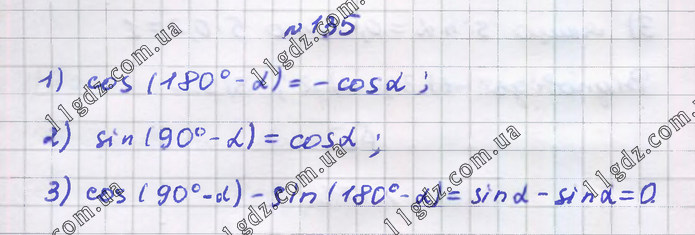 № 135
1) cos (180° - α) = - cos α ;
2) sin (90° - α) = cos α ;
3) cos (90° - α) - sin (180° - α) = sin α - sin α = 0.
11gdz.com.ua
11gdz.com.ua
11gdz.com.ua
11gdz.com.ua
11gdz.com.ua
11gdz.com.ua